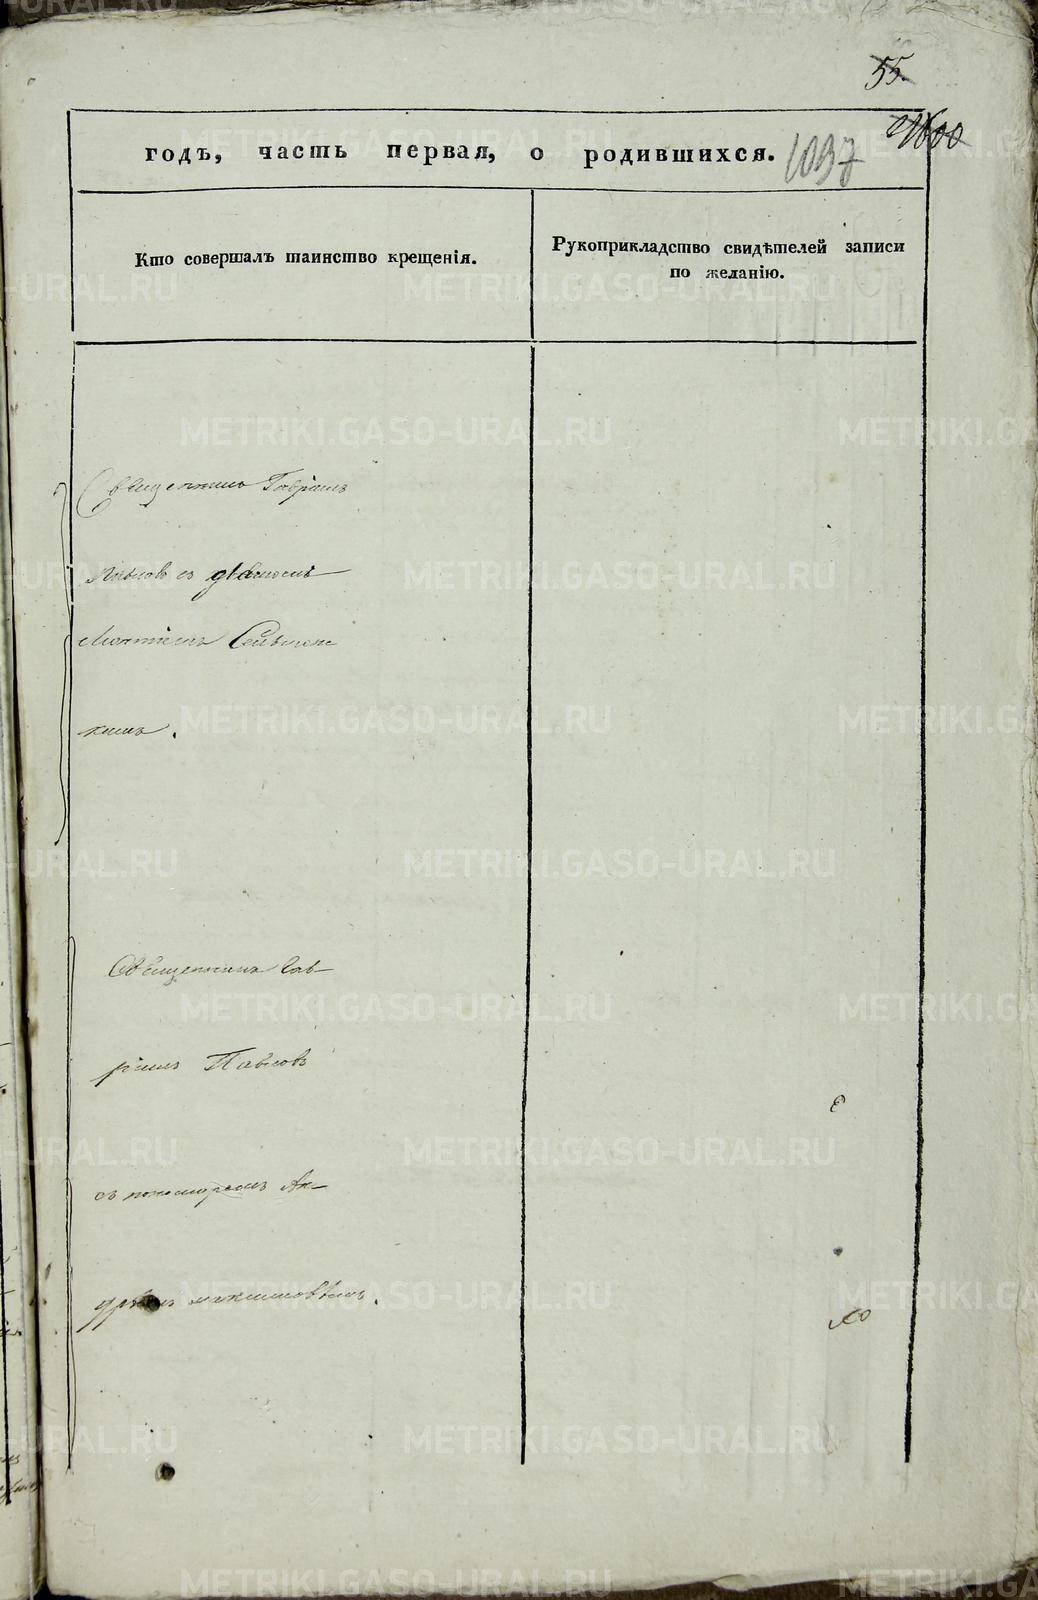 55.
1097
годъ, часть первая, о родившихся.
Кто совершалъ таинство крещенія.
Рукоприкладство свидѣтелей записи
по желанію.
Священникъ Гавріилъ
Павловъ съ діакономъ
кимъ.
Священникъ Гав-
ріилъ Павловъ
съ пономаремъ Ан-
дреемъ
METRIKI.GASO-URAL.RU